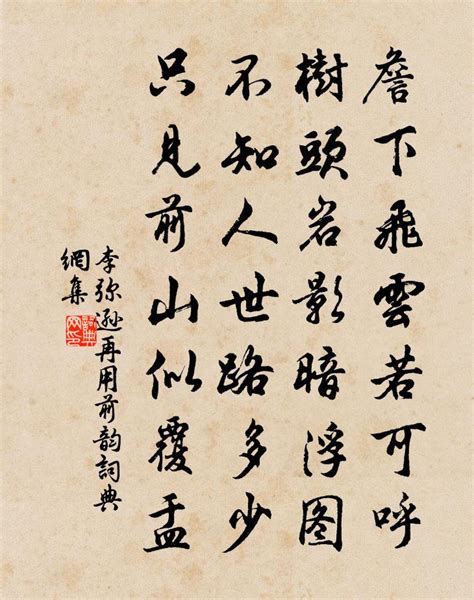 詹下飛雲若可呼
樹頭岩影暗浮图
不知人世路多少
只見前山似覆盂
李弥遜再用前韵詞典
網集